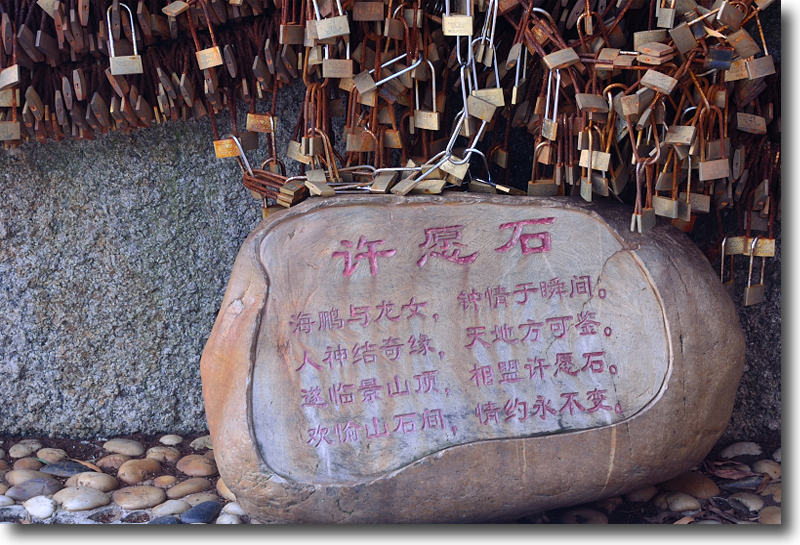 许愿石
海鹏与龙女，钟情于瞬间。
人神结奇缘，天地方可鉴。
遂临景山顶，相盟许愿石。
欢愉山石间，情约永不变。